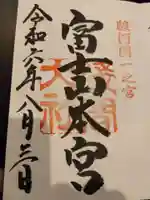 駿河国一之宮
富士本宮
浅間
大社
令和六年八月三日